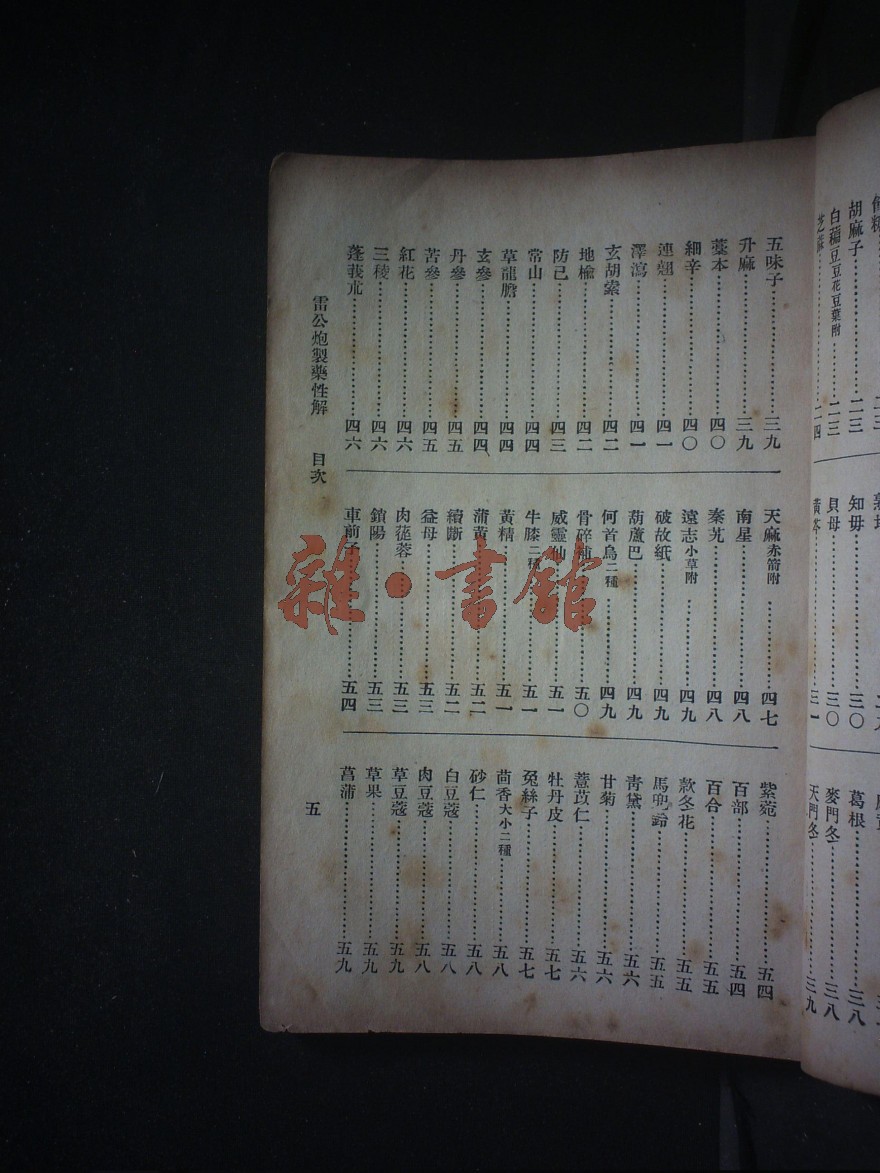 胡麻子……二三
白藊豆豆花豆葉附……二三
芝麻……二四
知毋……三〇
貝母……三〇
黃芩……三一
葛根……三八
麥門冬……三八
天門冬……三九
五味子……三九
升麻……三九
藁本……四〇
細辛……四〇
連翹……四一
澤瀉……四一
玄胡索……四二
地榆……四二
防己……四三
常山……四四
草龍膽……四四
玄參……四四
丹參……四五
苦參……四五
紅花……四六
三稜……四六
蓬莪朮……四六
天麻赤箭附……四七
南星……四八
秦艽……四八
遠志小草附……四九
破故紙……四九
葫蘆巴……四九
何首烏二種……四九
骨碎補……五〇
威靈仙……五一
牛膝二種……五一
黃精……五一
蒲黃……五二
續斷……五二
益母……五三
肉蓯蓉……五三
鎖陽……五三
車前子……五四
紫菀……五四
百部……五四
百合……五五
款冬花……五五
馬兜鈴……五五
青黛……五六
甘菊……五六
薏苡仁……五六
牡丹皮……五七
兔絲子……五七
茴香大小二種……五八
砂仁……五八
白豆蔻……五八
肉豆蔻……五八
草豆蔻……五九
草果……五九
菖蒲……五九
雷公炮製藥性解 目次
五
雜·書館